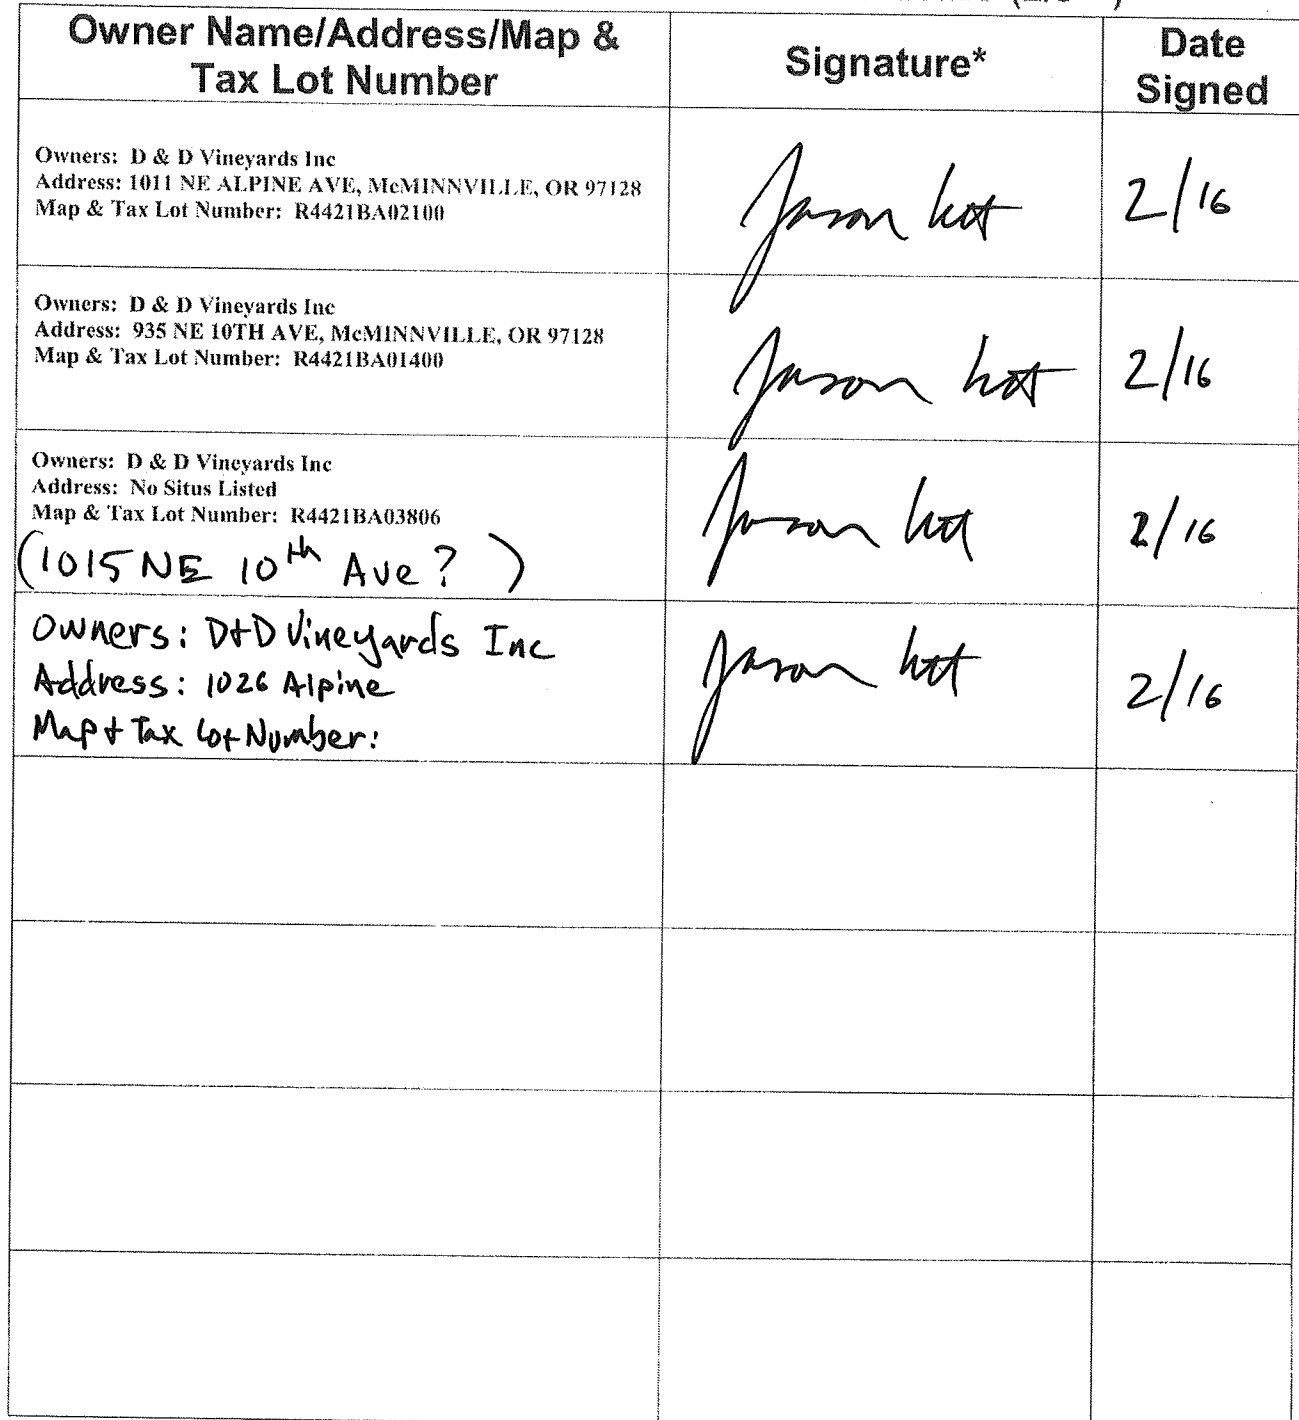 Owner Name/Address/Map &
Tax Lot Number
Signature*
Date
Signed
Owners: D & D Vineyards Inc
Address: 1011 NE ALPINE AVE, McMINNVILLE, OR 97128
Map & Tax Lot Number: R4421BA02100
Jason
2/16
Owners: D & D Vineyards Inc
Address: 935 NE 10TH AVE, McMINNVILLE, OR 97128
Map & Tax Lot Number: R4421BA01400
Jason
2/16
Owners: D & D Vineyards Inc
Address: No Situs Listed
Map & Tax Lot Number: R4421BA03806
(1015 NE 10th Ave? )
Jason
2/16
Owners: D+D Vineyards Inc
Address: 1026 Alpine
Map + Tax Lot Number:
Jason
2/16